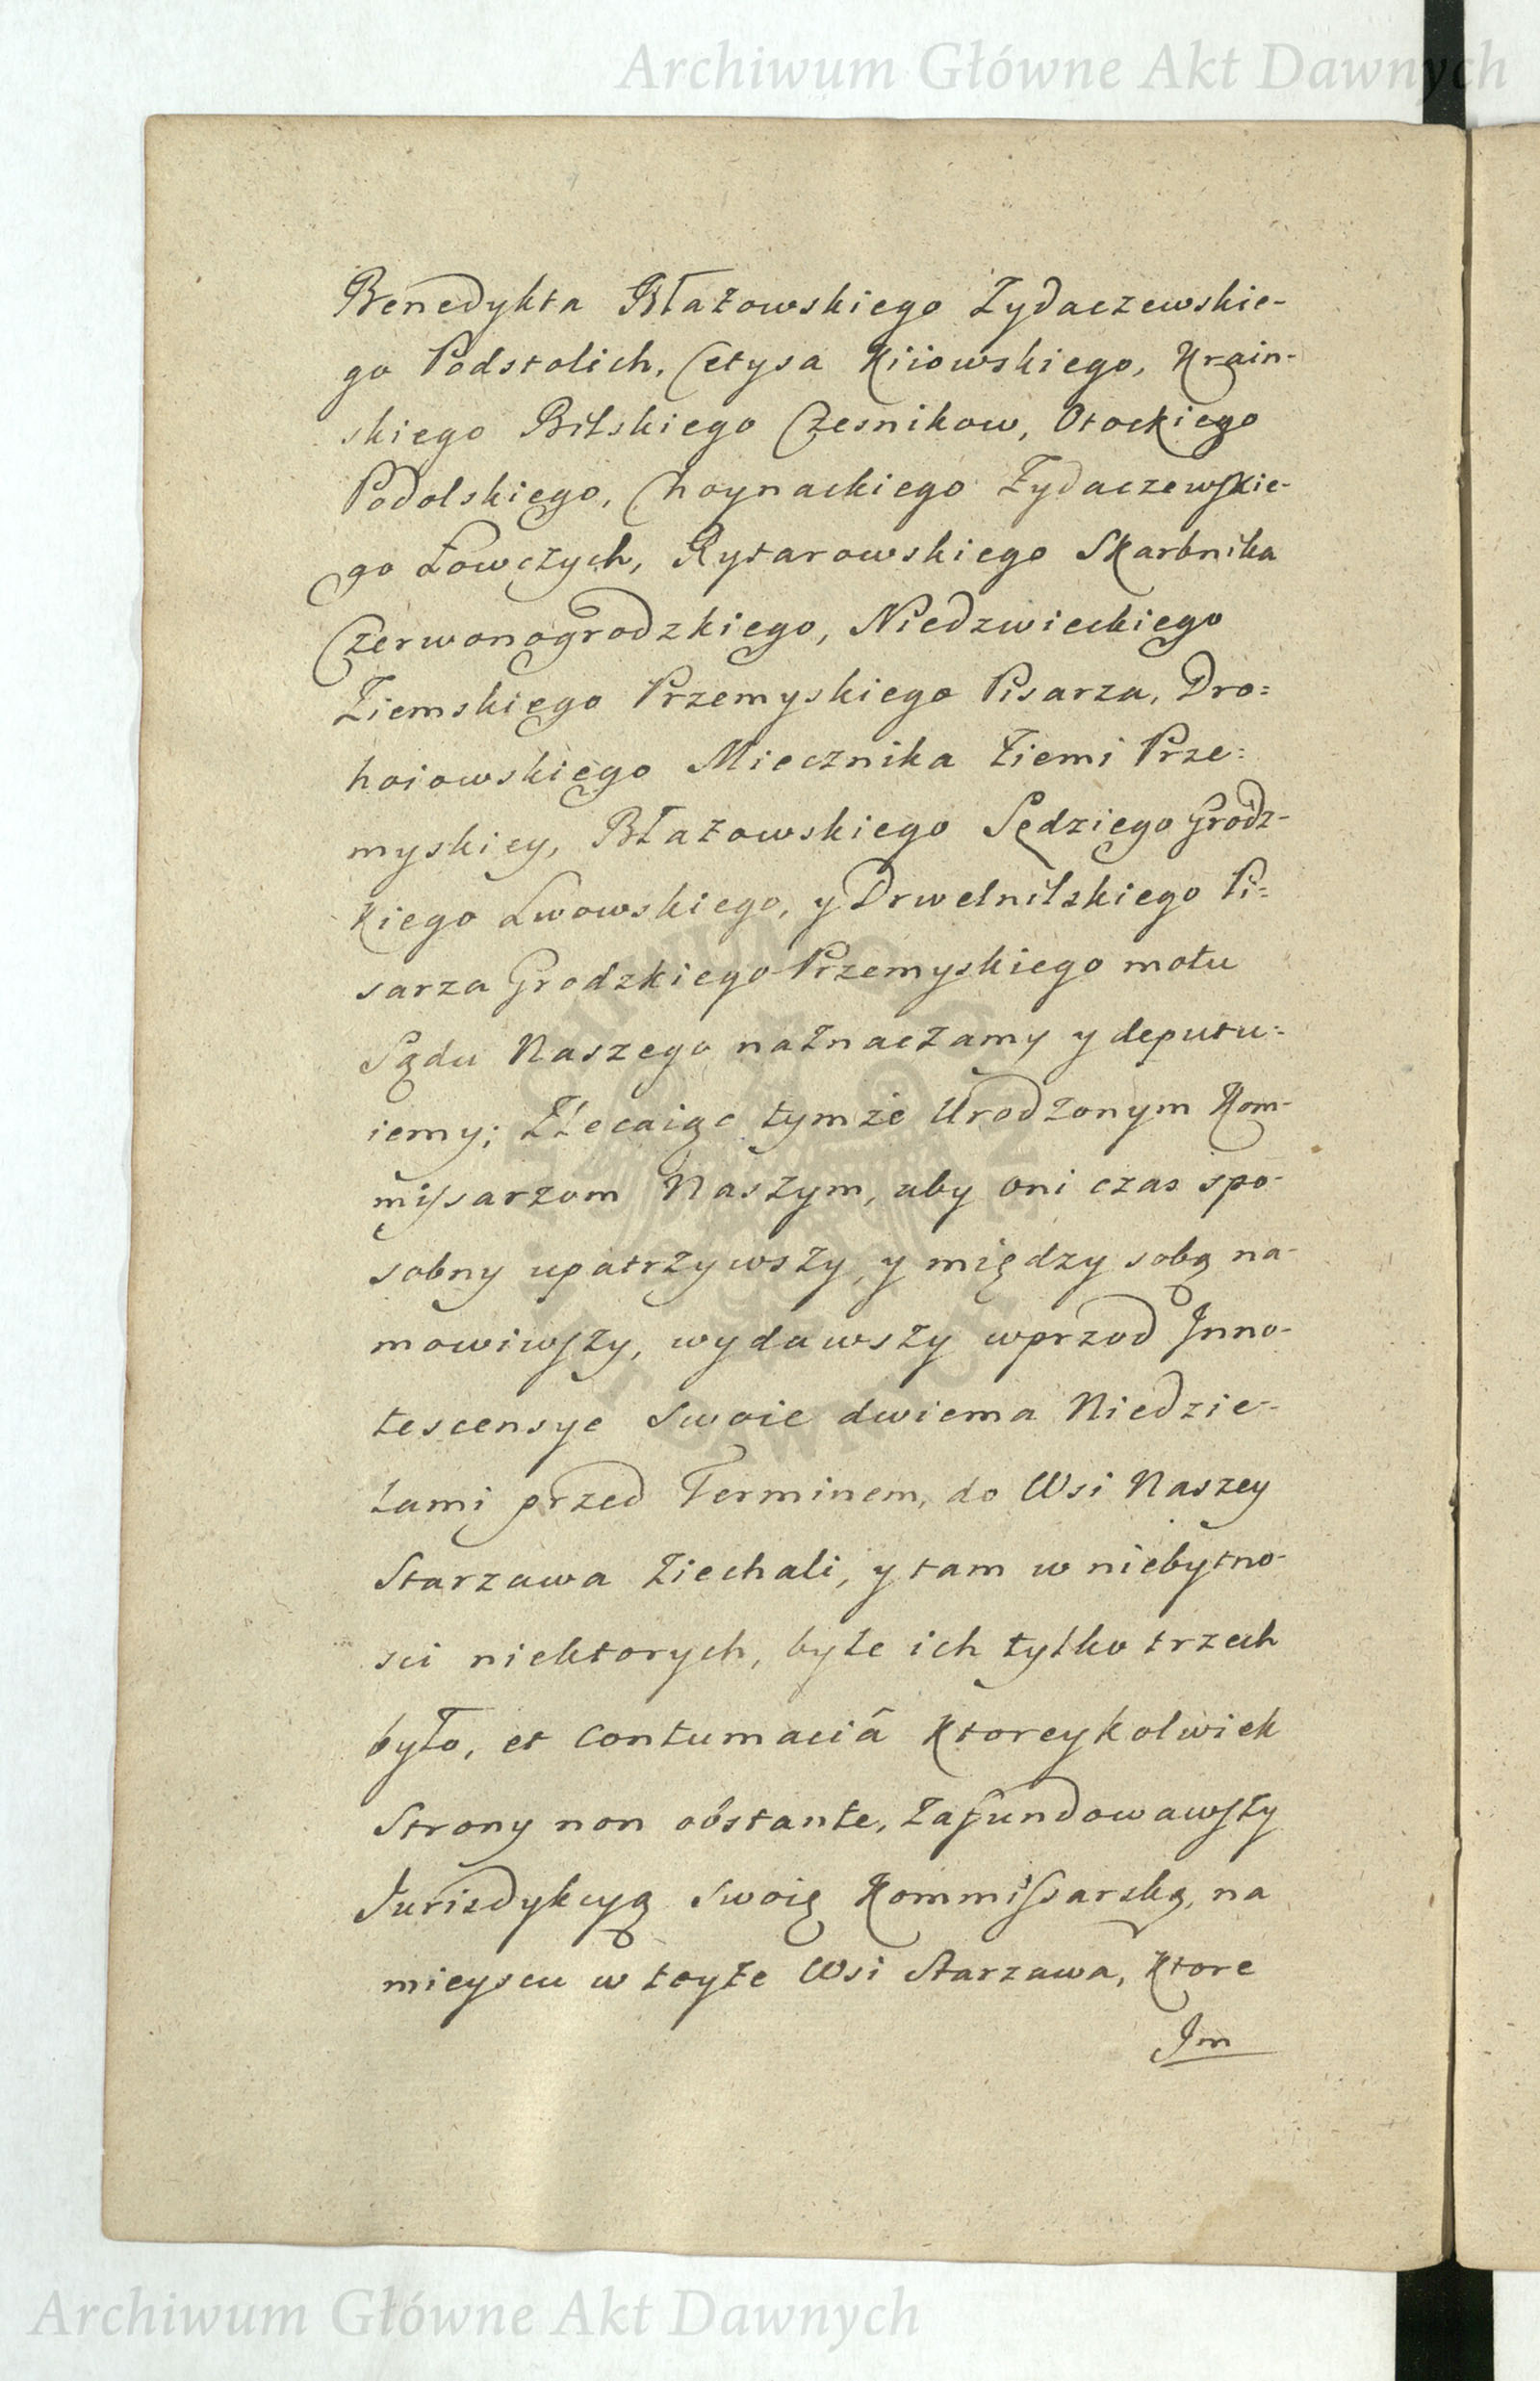 Archiwum Główne Akt Dawnych
Benedykta Błażowskiego Zydaczewskie-
go Podstolich, Cetysa Kiiowskiego, Krain-
skiego Bilskiego Czesnikow, Otockiego
Podolskiego, Choynackiego Zydaczewskie-
go Łowczych, Rytarowskiego Skarbnika
Czerwonogrodzkiego, Niedzwieckiego
Ziemskiego Przemyskiego Pisarza, Dro=
hoiowskiego Miecznika Ziemi Prze=
myskiey, Błażowskiego Sędziego Grodz-
kiego Lwowskiego, y Drwelnilskiego Pi=
sarza Grodzkiego Przemyskiego motu
Sądu Naszego naznaczamy y deputu=
iemy; Zlecaiąc tymże Urodzonym Kom-
missarzom Naszym, aby oni czas spo-
sobny upatrzywszy, y między sobą na-
mowiwszy, wydawszy wprzod Inno-
tescensye Swoie dwiema Niedzie-
lami przed Terminem, do Wsi Naszey
Starzawa Ziechali, y tam w niebytno-
sci niektorych, byle ich tylko trzech
było, et contumaciâ ktoreykolwiek
Strony non obstante, Zafundowawszy
Jurisdykcyą Swoią Kommissarską, na
mieyscu w teyże Wsi Starzawa, ktore
Im
Archiwum Główne Akt Dawnych